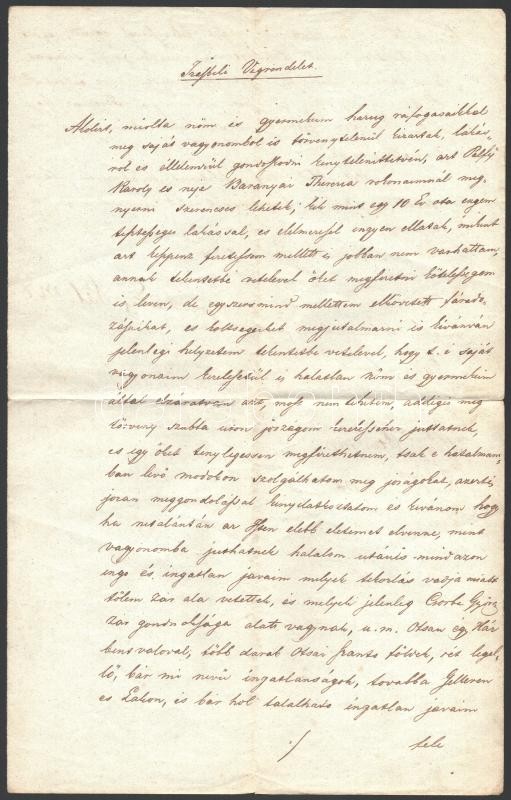 Irásbeli Végrendelet.
Alolirt, miolta nöm és gyermekeim hazug ráfogásaikkal
meg saját vagyonomból is törvénytelenül kizártak, lakás-
rol és élelemrül gondoskodni kénytelenittetvén, azt Pálfy
Karoly és neje Baranyai Therezia rokonaimnál meg-
nyerni szerencsés lehetek, kik mint egy 10 Év ota engem
lakással, és élelmezéssel ingyen ellátak, mikint
azt fizetésem mellett is jobban nem várhattam,
annak tekintetbe vételével öket megfizetni kötelességem
is leven, de egyszersmind mellettem elkövetett fárado-
zásaikat, és költségeiket megjutalmazni is kívánván
jelenlegi helyzetem tekintetbe vételével, hogy t. i. saját
vagyonaim kezelésétül is halatlan nöm és gyermekeim
által elzáratván azt, most nem tehetem, addigis még
törvény szabta uton joszágom juthatnék,
és igy öket tenylegessen megfizethetném, csak a hatalmam-
ban lévö modokon szolgálhatom meg joságokat, azért is
jozan meggondolással kinyilatkoztatom és kivánom hogy
ha netalántán az Isten elébb életemet elvenné, mint
vagyonomba juthatnék halálom utánis mindazon
ingó és ingatlan javaim melyek tékozlás vádja miatt
tölem zár alá vétettek, és melyek jelenleg Csorba György
zár gondnoksága alatt vagynak, u. m. Ótsán egy Ház
bensövalóval, több darab Otsai földek, rét lege-
lö, bár mi nevü ingatlanságok, tovabbá Gelleren
és Ekelen, és bár hol található ingatlan javaim
./. fele